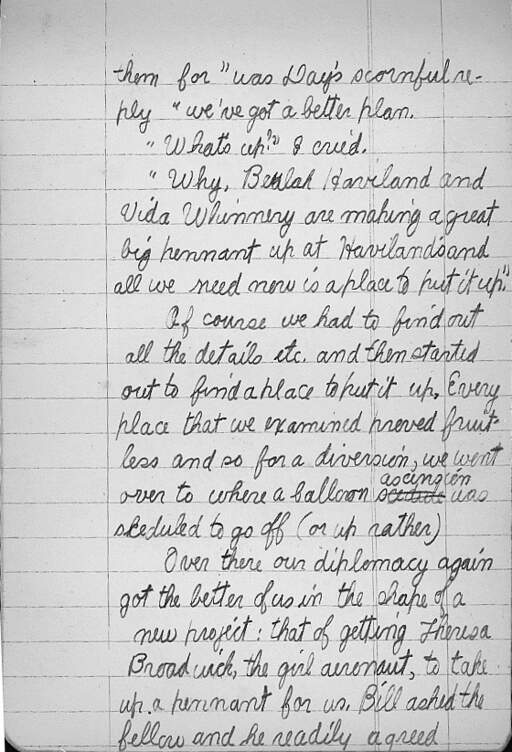 them for" was Day's scornful re-
ply "we've got a better plan.
"What's up?" I cried.
"Why, Beulah Haviland and
Vida Whinnery are making a great
big pennant up at Haviland's and
all we need now is a place to put it up."
Of course we had to find out
all the details etc. and then started
out to find a place to put it up. Every
place that we examined proved fruit-
less and so for a diversion, we went
over to where a balloon ascension was
sceduled to go off (or up rather)
Over there our diplomacy again
got the better of us in the shape of a
new project: that of getting Theresa
Broadwick, the girl aeronaut, to take
up a pennant for us. Bill asked the
fellow and he readily agreed